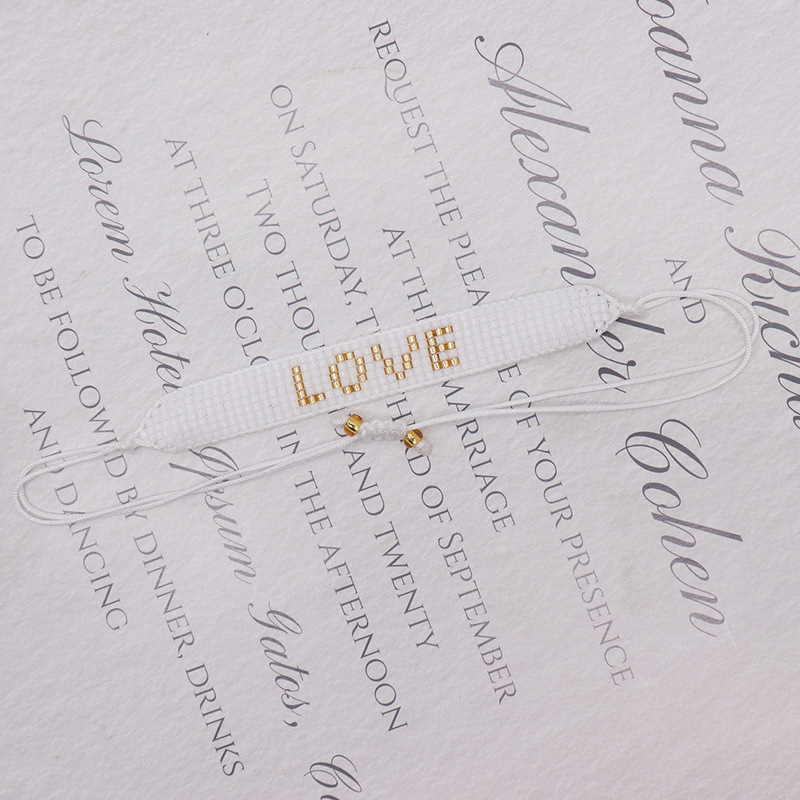 LOVE
oanna Richa
AND
Alexander Cohen
REQUEST THE PLEA E OF YOUR PRESENCE
AT THE MARRIAGE
ON SATURDAY, T D OF SEPTEMBER
TWO THOU AND TWENTY
AT THREE O'CLO IN THE AFTERNOON
Lorem Hotel Ipsum Gatos, C
TO BE FOLLOWED BY DINNER, DRINKS
AND DANCING